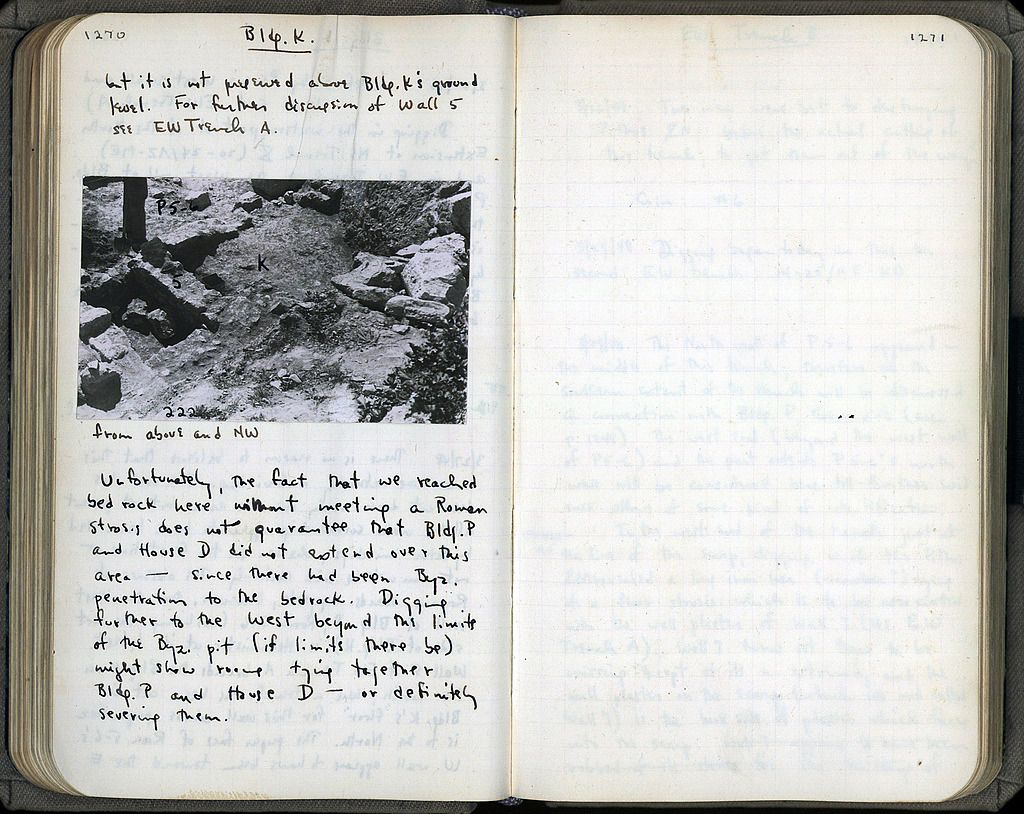 1270
Bldg. K.
but it is not preserved above Bldg. K's ground
level. For further discussion of Wall 5
see EW Trench A.
P5-6
K
5
222
from above and NW
Unfortunately, the fact that we reached
bedrock here without meeting a Roman
strosis does not guarantee that Bldg. P
and House D did not extend over this
area — since there had been Byz.
penetration to the bedrock. Digging
further to the West beyond the limits
of the Byz. pit (if limits there be)
might show rooms tying together
Bldg. P and House D — or definitely
severing them.
1271